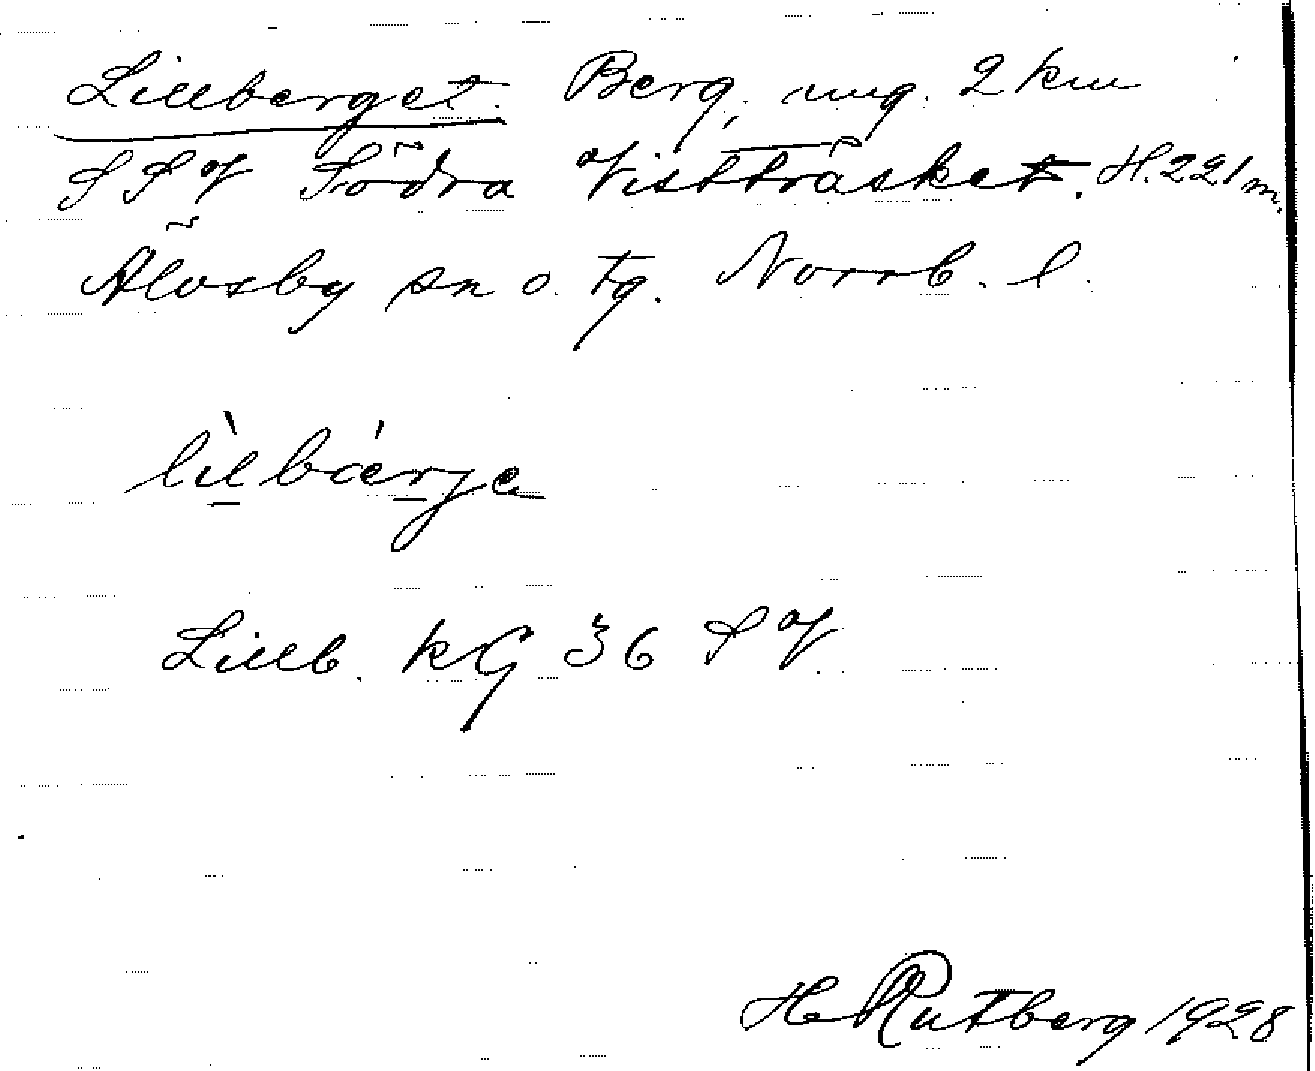 Lillberget. Berg, ung. 2 km
S S V Södra Vistträsket. H. 221 m.
Älvsby sn o. tg. Norrb. l.
lìlbárje
Lillb. KG 36 S V
H Rutberg 1928